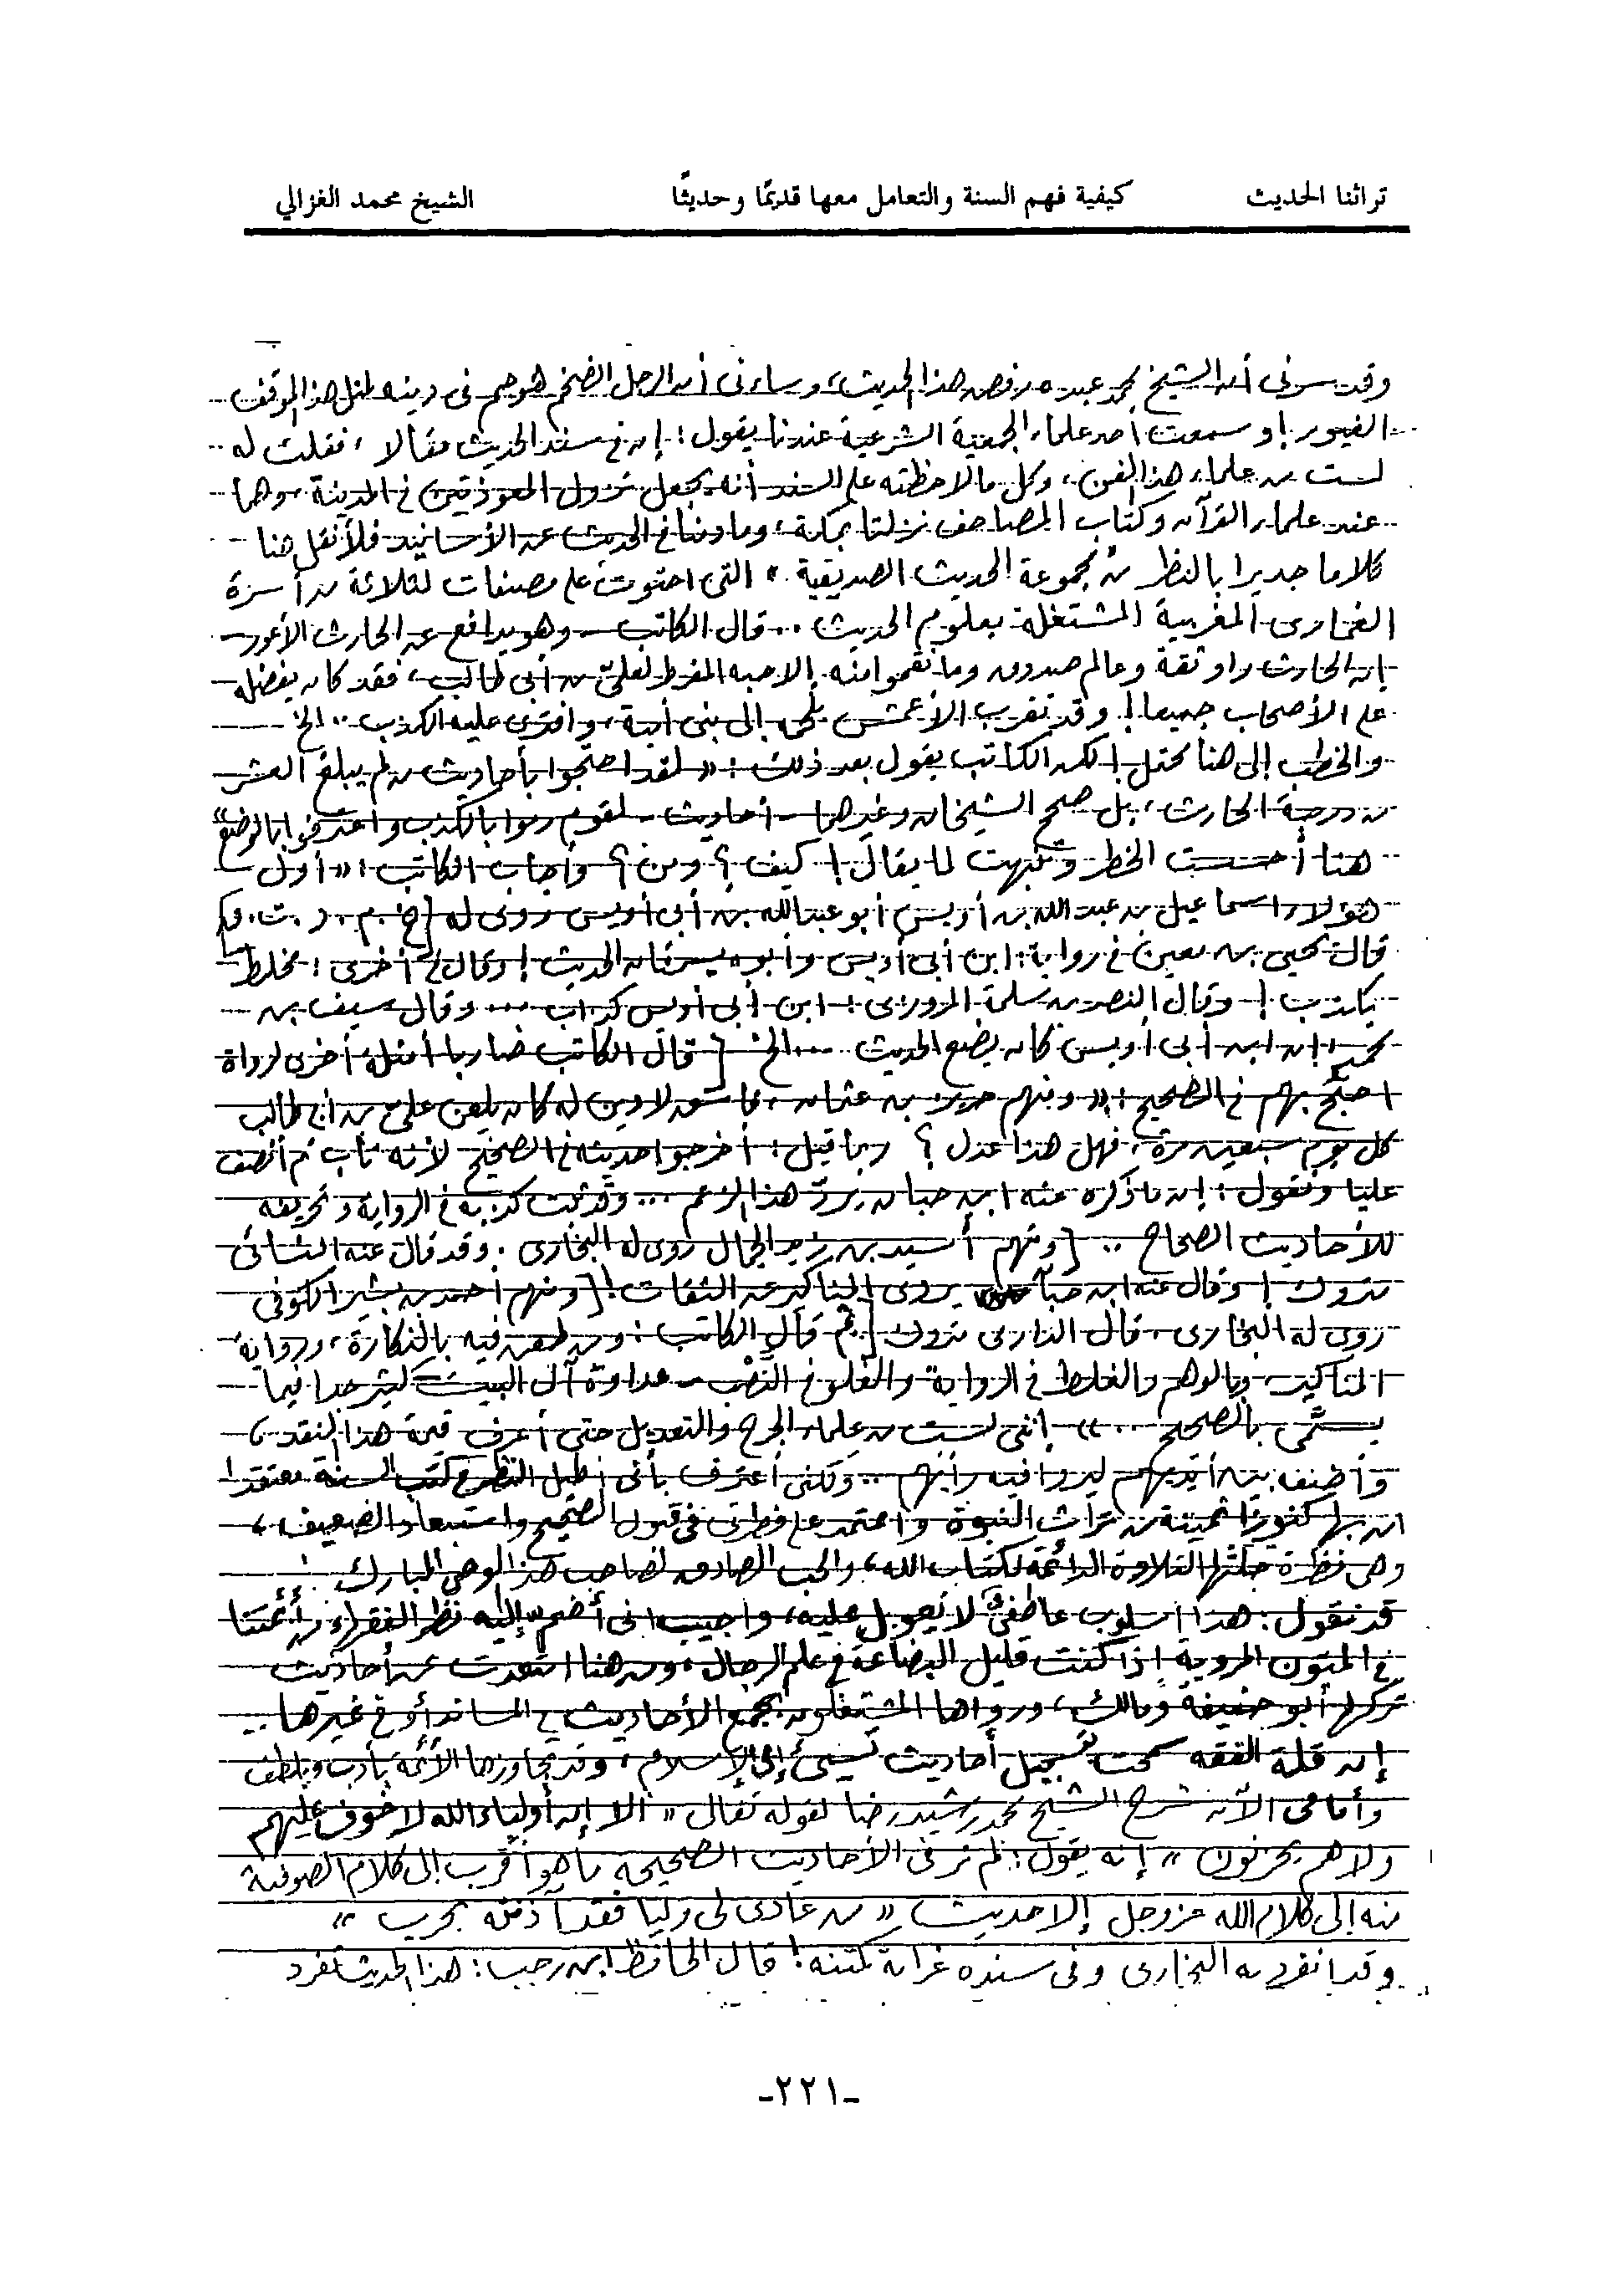 تراثنا الحديث كيفية فهم السنة والتعامل معها قديمًا وحديثًا الشيخ محمد الغزالي
وقد سرنى أن الشيخ محمد عبده رفض هذا الحديث، وساءنى أن الرجل الضخم هوجم فى دينه لمثل هذا الموقف
الغيور! وسمعت أحد علماء الجمعية الشرعية عندنا يقول: إن فى سند الحديث مقالا، فقلت له
لست من علماء هذا الفن، وكل ما لاحظته على السند أنه يجعل نزول المعوذتين فى المدينة، وهما
عند علماء القرآن وكتاب المصاحف نزلتا بمكة، وما دمنا فى الحديث عن الأسانيد فلأنقل هنا
كلاما جديرا بالنظر من مجموعة الحديث الصديقية، التى احتوت على مصنفات لثلاثة من أسرة
الغمارى المغربية المشتغلة بعلوم الحديث .. قال الكاتب - وهو يدافع عن الحارث الأعور -
إن الحارث راو ثقة وعالم صدوق وما نقموا منه إلا حبه المفرط لعلىّ بن أبى طالب، فقد كان يفضله
على الأصحاب جميعا! وقد تقرب الأعمش إلى بنى أمية، وافترى عليه الكذب .. الخ
والخطب إلى هنا محتمل! لكن الكاتب يقول بعد ذلك: «لقد احتجوا بأحاديث من لم يبلغ العشر
من درجة الحارث، بل صحح الشيخان وغيرهما - أحاديث - لقوم رموا بالكذب واعترفوا بالوضع»
هنا أحسست الخطر وتنبهت لما يقال! كيف؟ ومن؟ وأجاب الكاتب: «أول
هؤلاء اسماعيل بن عبد الله بن أويس أبو عبد الله بن أبى أويس روى له [خ. م. د. ت.
قال يحيى بن معين فى رواية: ابن أبى أويس وأبوه يسرقان الحديث! وقال فى أخرى: مخلط
يكذب! وقال النضر بن سلمة المروزى: ابن أبى أويس كذاب ... وقال سيف بن
محمد: إن ابن أبى أويس كان يضع الحديث .... الخ [قال الكاتب ضاربا أمثلة أخرى لرواة
احتج بهم فى الصحيح: «ومنهم حريز بن عثمان، فاسق لا دين له كان يلعن علىّ بن أبى طالب
كل يوم سبعين مرة، فهل هذا عدل؟ ربما قيل: أخرجوا حديثه فى الصحيح لأنه تاب
علينا ونقول: إن ما ذكره عنه ابن حبان يردّ هذا الزعم ... وقد ثبت كذبه فى الرواية وتحريفه
للأحاديث الصحاح .. [ومنهم أسيد بن زيد الجمال روى له البخارى. وقد قال عنه النسائى
متروك! وقال عنه ابن حبان يروى المناكير عن الثقات! [ومنهم أحمد بن بشير الكوفى
روى له البخارى، قال الدارمى متروك [ثم قال الكاتب: ومن طعن فيه بالنكارة، ورواية
المناكير، وبالوهم والغلط فى الرواية والغلو فى النصب - عداوة آل البيت - كثير جدا فيما
يسمّى بالصحيح ...» إننى لست من علماء الجرح والتعديل حتى أعرف قيمة هذا النقد،
وأضعه بين أيديهم ليروا فيه رأيهم .. ولكنى أعترف بأنى أطيل النظر فى كتب السنة معتقدا
ان بها كنوزا ثمينة من تراث النبوة وأعتمد على فطرتى فى قبول الصحيح واستبعاد الضعيف،
وهى فطرة جلتها التلاوة الدائمة لكتاب الله، والحب الصادق لصاحب هذا الوحى المبارك
قد تقول: هذا أسلوب عاطفىّ لا يعول عليه، وأجيب انى أضم إليه نظر الفقهاء من أئمتنا
فى المتون المروية إذا كنت قليل البضاعة فى علم الرجال، ومن هنا ابتعدت عن أحاديث
تركها أبو حنيفة ومالك، ورواها المشتغلون بجمع الأحاديث فى المساند أو فى غيرها ..
إن قلة الفقه سمحت بتسجيل أحاديث تسيئ إلى الإسلام، وقد تجاوزها الأئمة بأدب ولطف
وأمامى الآن شرح الشيخ محمد رشيد رضا لقوله تعالى «ألا إن أولياء الله لا خوف عليهم
ولا هم يحزنون» إنه يقول: لم نر فى الأحاديث الصحيحة ما هو أقرب إلى كلام الصوفية
منه إلى كلام الله عز وجل إلا حديث «من عادى لى وليا فقد آذنته بحرب»
وقد انفرد به البخارى وفى سنده غرابة كمتنه! قال الحافظ ابن رجب: هذا الحديث تفرد
-٢٢١-